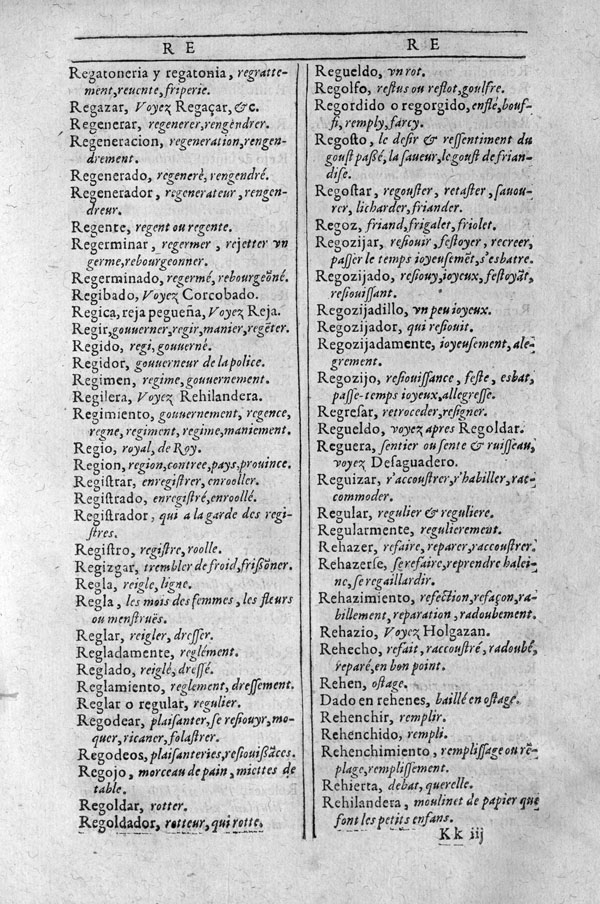 R E
Regatoneria y regatonia, regratte-
ment, reuente, friperie.
Regazar, Voyez Regaçar, &c.
Regenerar, regenerer, rengendrer.
Regeneracion, regeneration, rengen-
drement.
Regenerado, regeneré, rengendré.
Regenerador, regenerateur, rengen-
dreur.
Regente, regent ou regente.
Regerminar, regermer, rejetter vn
germe, rebourgeonner.
Regerminado, regermé, rebourgeõné.
Regibado, Voyez Corcobado.
Regica, reja pegueña, Voyez Reja.
Regir, gouuerner, regir, manier, regẽter.
Regido, regi, gouuerné.
Regidor, gouuerneur de la police.
Regimen, regime, gouuernement.
Regilera, Voyez Rehilandera.
Regimiento, gouuernement, regence,
regne, regiment, regime, maniement.
Regio, royal, de Roy.
Region, region, contree, pays, prouince.
Registrar, enregistrer, enrooller.
Registrado, enregistré, enroollé.
Registrador, qui a la garde des regi-
stres.
Registro, registre, roolle.
Regizgar, trembler de froid, frißõner.
Regla, reigle, ligne.
Regla, les mois des femmes, les fleurs
ou menstruës.
Reglar, reigler, dresser.
Regladamente, reglément.
Reglado, reiglé, dressé.
Reglamiento, reglement, dressement.
Reglar o regular, regulier.
Regodear, plaisanter, se resiouyr, mo-
quer, ricaner, folastrer.
Regodeos, plaisanteries, resiouißãces.
Regojo, morceau de pain, miettes de
table.
Regoldar, rotter.
Regoldador, rotteur, qui rotte.
R E
Regueldo, vn rot.
Regolfo, reflus ou reflot, goulfre.
Regordido o regorgido, enflé, bouf-
fi, remply, farcy.
Regosto, le desir & ressentiment du
goust paßé, la saueur, le goust de frian-
dise.
Regostar, regouster, retaster, sauou-
rer, licharder, friander.
Regoz, friand, frigalet, friolet.
Regozijar, resiouir, festoyer, recreer,
passer le temps ioyeusemẽt, s'esbatre.
Regozijado, resiouy, ioyeux, festoyãt,
resiouissant.
Regozijadillo, vn peu ioyeux.
Regozijador, qui resiouit.
Regozijadamente, ioyeusement, ale-
grement.
Regozijo, resiouissance, feste, esbat,
passe-temps ioyeux, allegresse.
Regresar, retroceder, resigner.
Regueldo, voyez apres Regoldar.
Reguera, sentier ou sente & ruisseau,
voyez Desaguadero.
Reguizar, r'accoustrer, r'habiller, rac-
commoder.
Regular, regulier & reguliere.
Regularmente, regulierement.
Rehazer, refaire, reparer, raccoustrer.
Rehazerse, se refaire, reprendre halei-
ne, se regaillardir.
Rehazimiento, refection, refaçon, ra-
billement, reparation, radoubement.
Rehazio, Voyez Holgazan.
Rehecho, refait, raccoustré, radoubé,
reparé, en bon point.
Rehen, ostage.
Dado en rehenes, baillé en ostage.
Rehenchir, remplir.
Rehenchido, rempli.
Rehenchimiento, remplissage ou rẽ-
plage, remplissement.
Rehierta, debat, querelle.
Rehilandera, moulinet de papier que
font les petits enfans.
K k iij